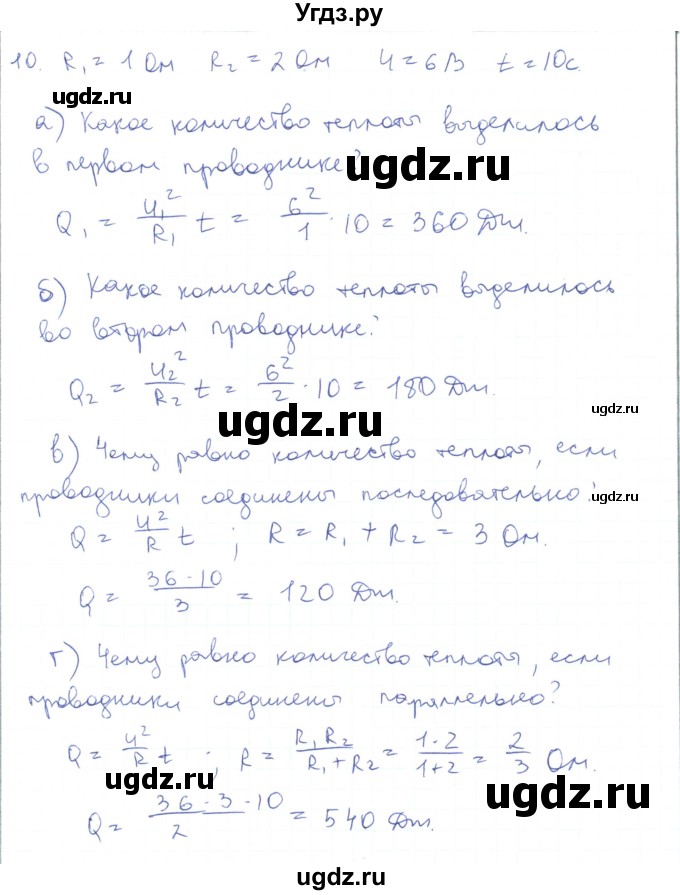 Угдз.ру
10. R₁ = 1 Ом R₂ = 2 Ом U = 6 В t = 10с.
ugdz.ru
а) Какое количество теплоты выделилось
в первом проводнике?
ugdz.ru
Q₁ = U₁²/R₁ t = 6²/1 · 10 = 360 Дж.
б) Какое количество теплоты выделилось
во втором проводнике?
Q₂ = U₂²/R₂ t = 6²/2 · 10 = 180 Дж.
ugdz.ru
ugdz.ru
в) Чему равно количество теплоты, если
проводники соединены последовательно?
ugdz.ru
Q = U²/R t ; R = R₁ + R₂ = 3 Ом.
Q = 36·10/3 = 120 Дж.
г) Чему равно количество теплоты, если
проводники соединены параллельно?
Q = U²/R t ; R = R₁R₂/R₁+R₂ = 1·2/1+2 = 2/3 Ом.
ugdz.ru
ugdz.ru
Q = 36·3·10/2 = 540 Дж.
ugdz.ru